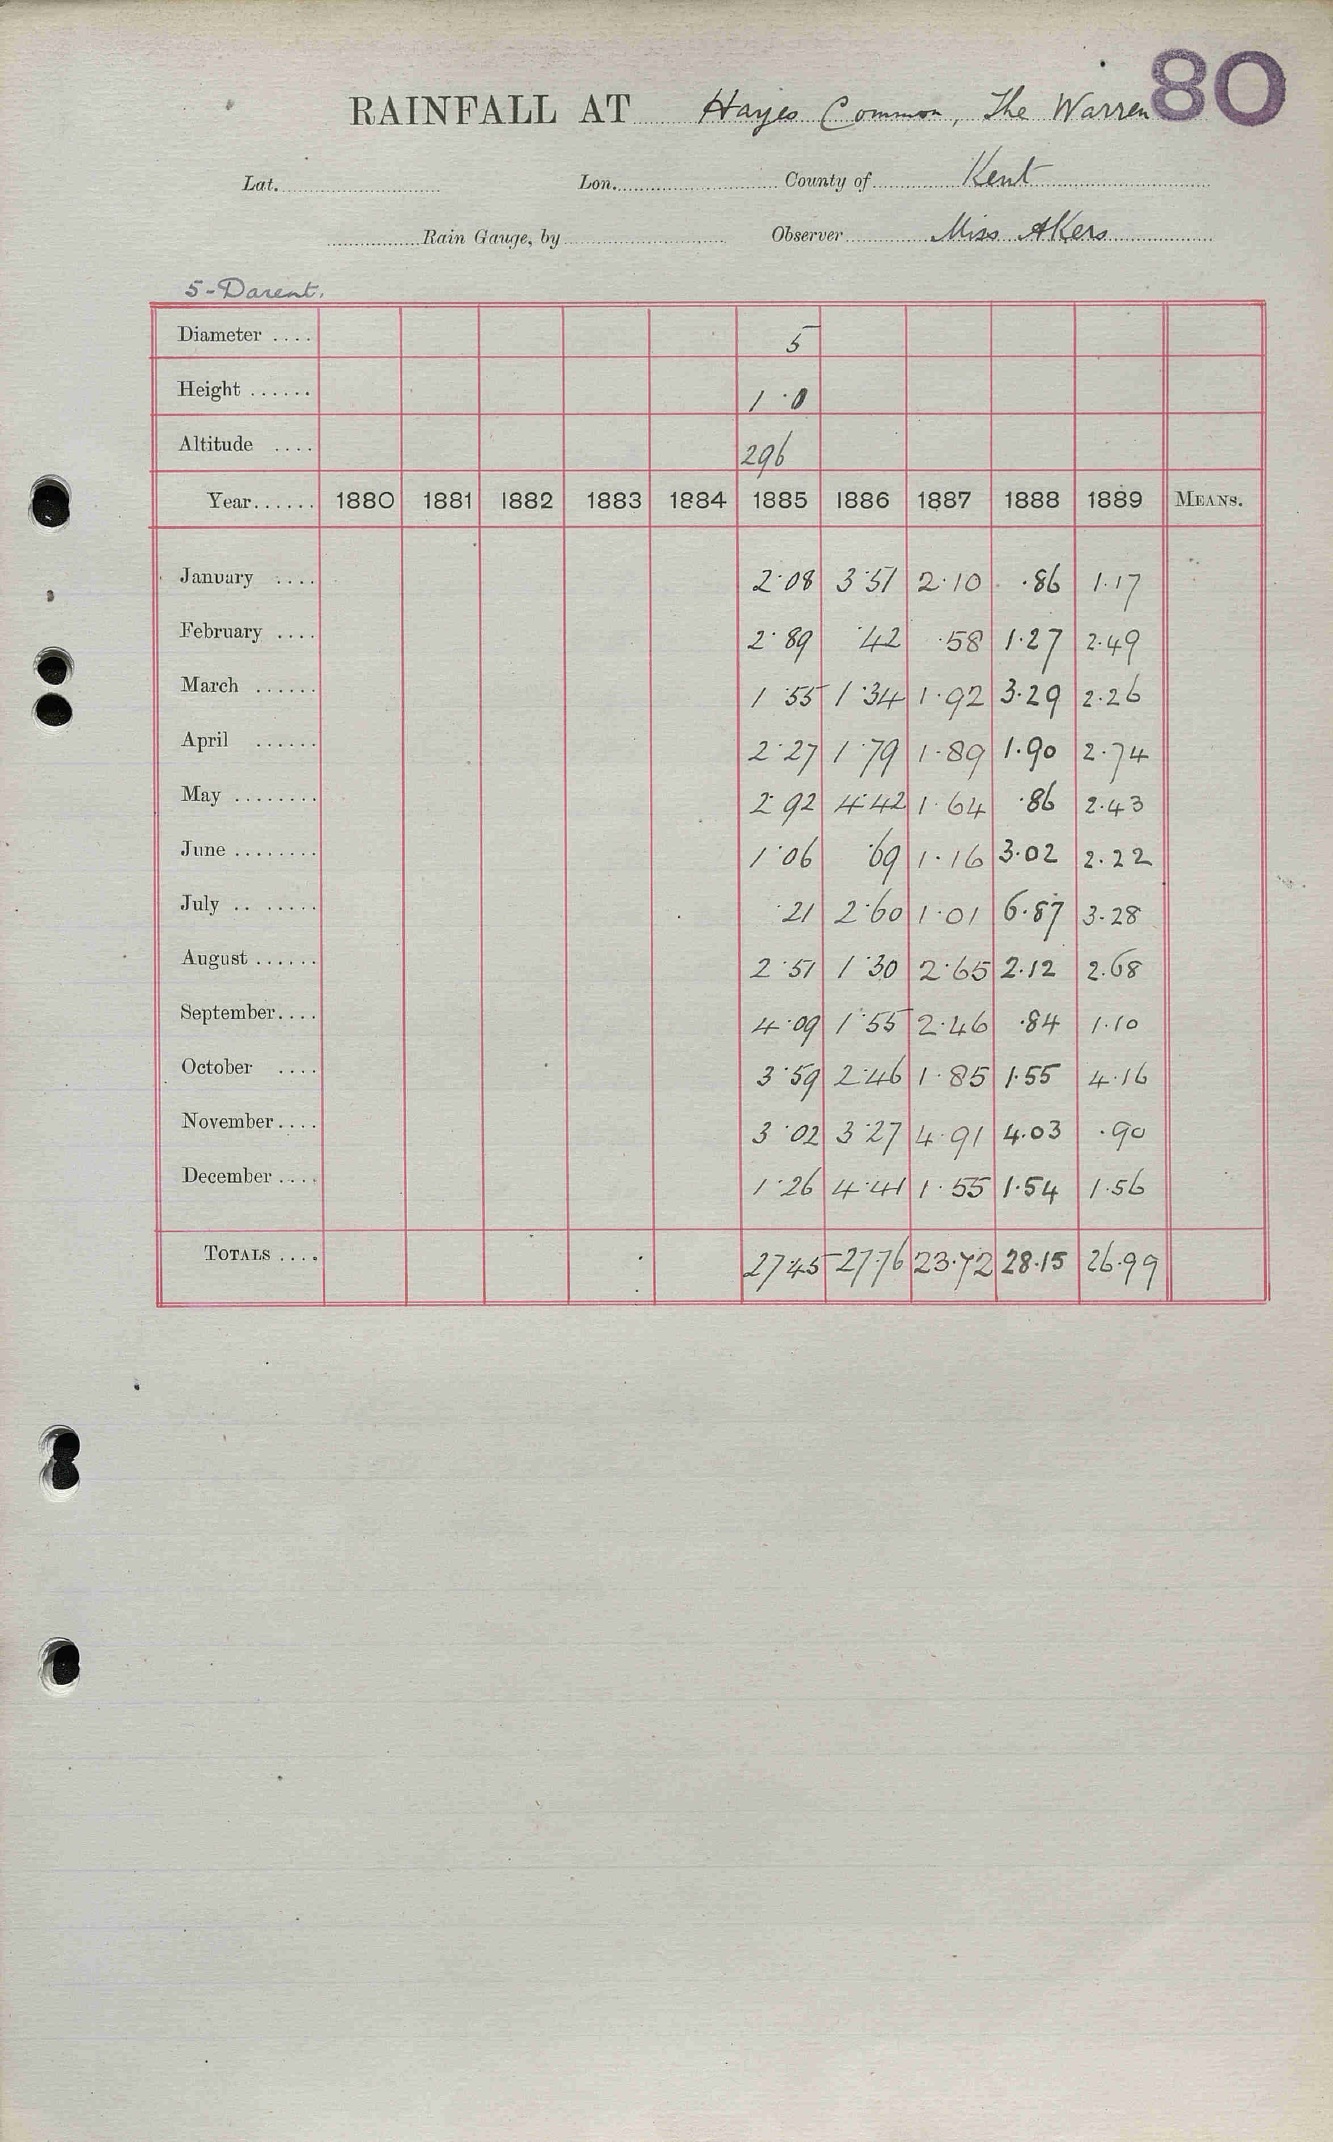 80
RAINFALL AT Hayes Common, The Warren
Lat. Lon. County of Kent
Rain Gauge, by Observer Miss Akers
5-Darent.
Diameter .... 5
Height ...... 1·0
Altitude .... 296
Year...... 1880 1881 1882 1883 1884 1885 1886 1887 1888 1889 MEANS.
January .... 2·08 3·51 2·10 ·86 1·17
February .... 2·89 ·42 ·58 1·27 2·49
March ...... 1·55 1·34 1·92 3·29 2·26
April ...... 2·27 1·79 1·89 1·90 2·74
May ........ 2·92 4·42 1·64 ·86 2·43
June ........ 1·06 ·69 1·16 3·02 2·22
July .. ...... ·21 2·60 1·01 6·87 3·28
August ...... 2·51 1·30 2·65 2·12 2·68
September.... 4·09 1·55 2·46 ·84 1·10
October .... 3·59 2·46 1·85 1·55 4·16
November.... 3·02 3·27 4·91 4·03 ·90
December .... 1·26 4·41 1·55 1·54 1·56
TOTALS .... 27·45 27·76 23·72 28·15 26·99